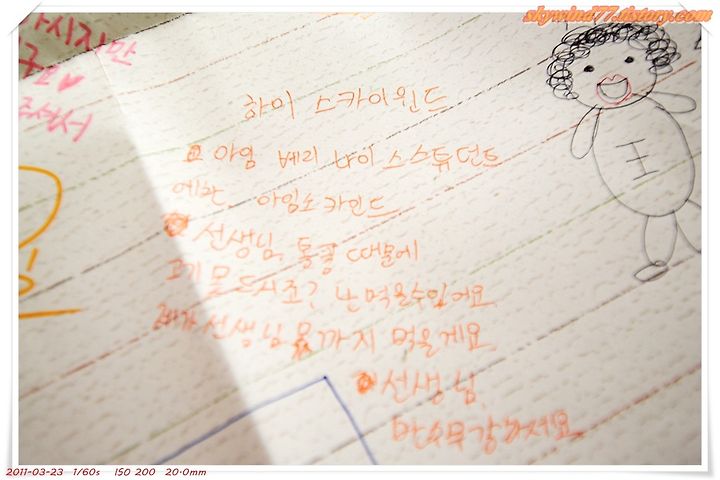 skywind77.tistory.com
가시지만
하이 스카이윈드
아임 베리 나이스 스튜던트
에반. 아임 소 카인드
선생님. 통풍 때문에
고기 못 드시죠? 난 먹을수있어요.
제가 선생님 몫까지 먹을게요.
선생님.
만수무강하세요.
2011-03-23 1/60s ISO 200 20.0mm